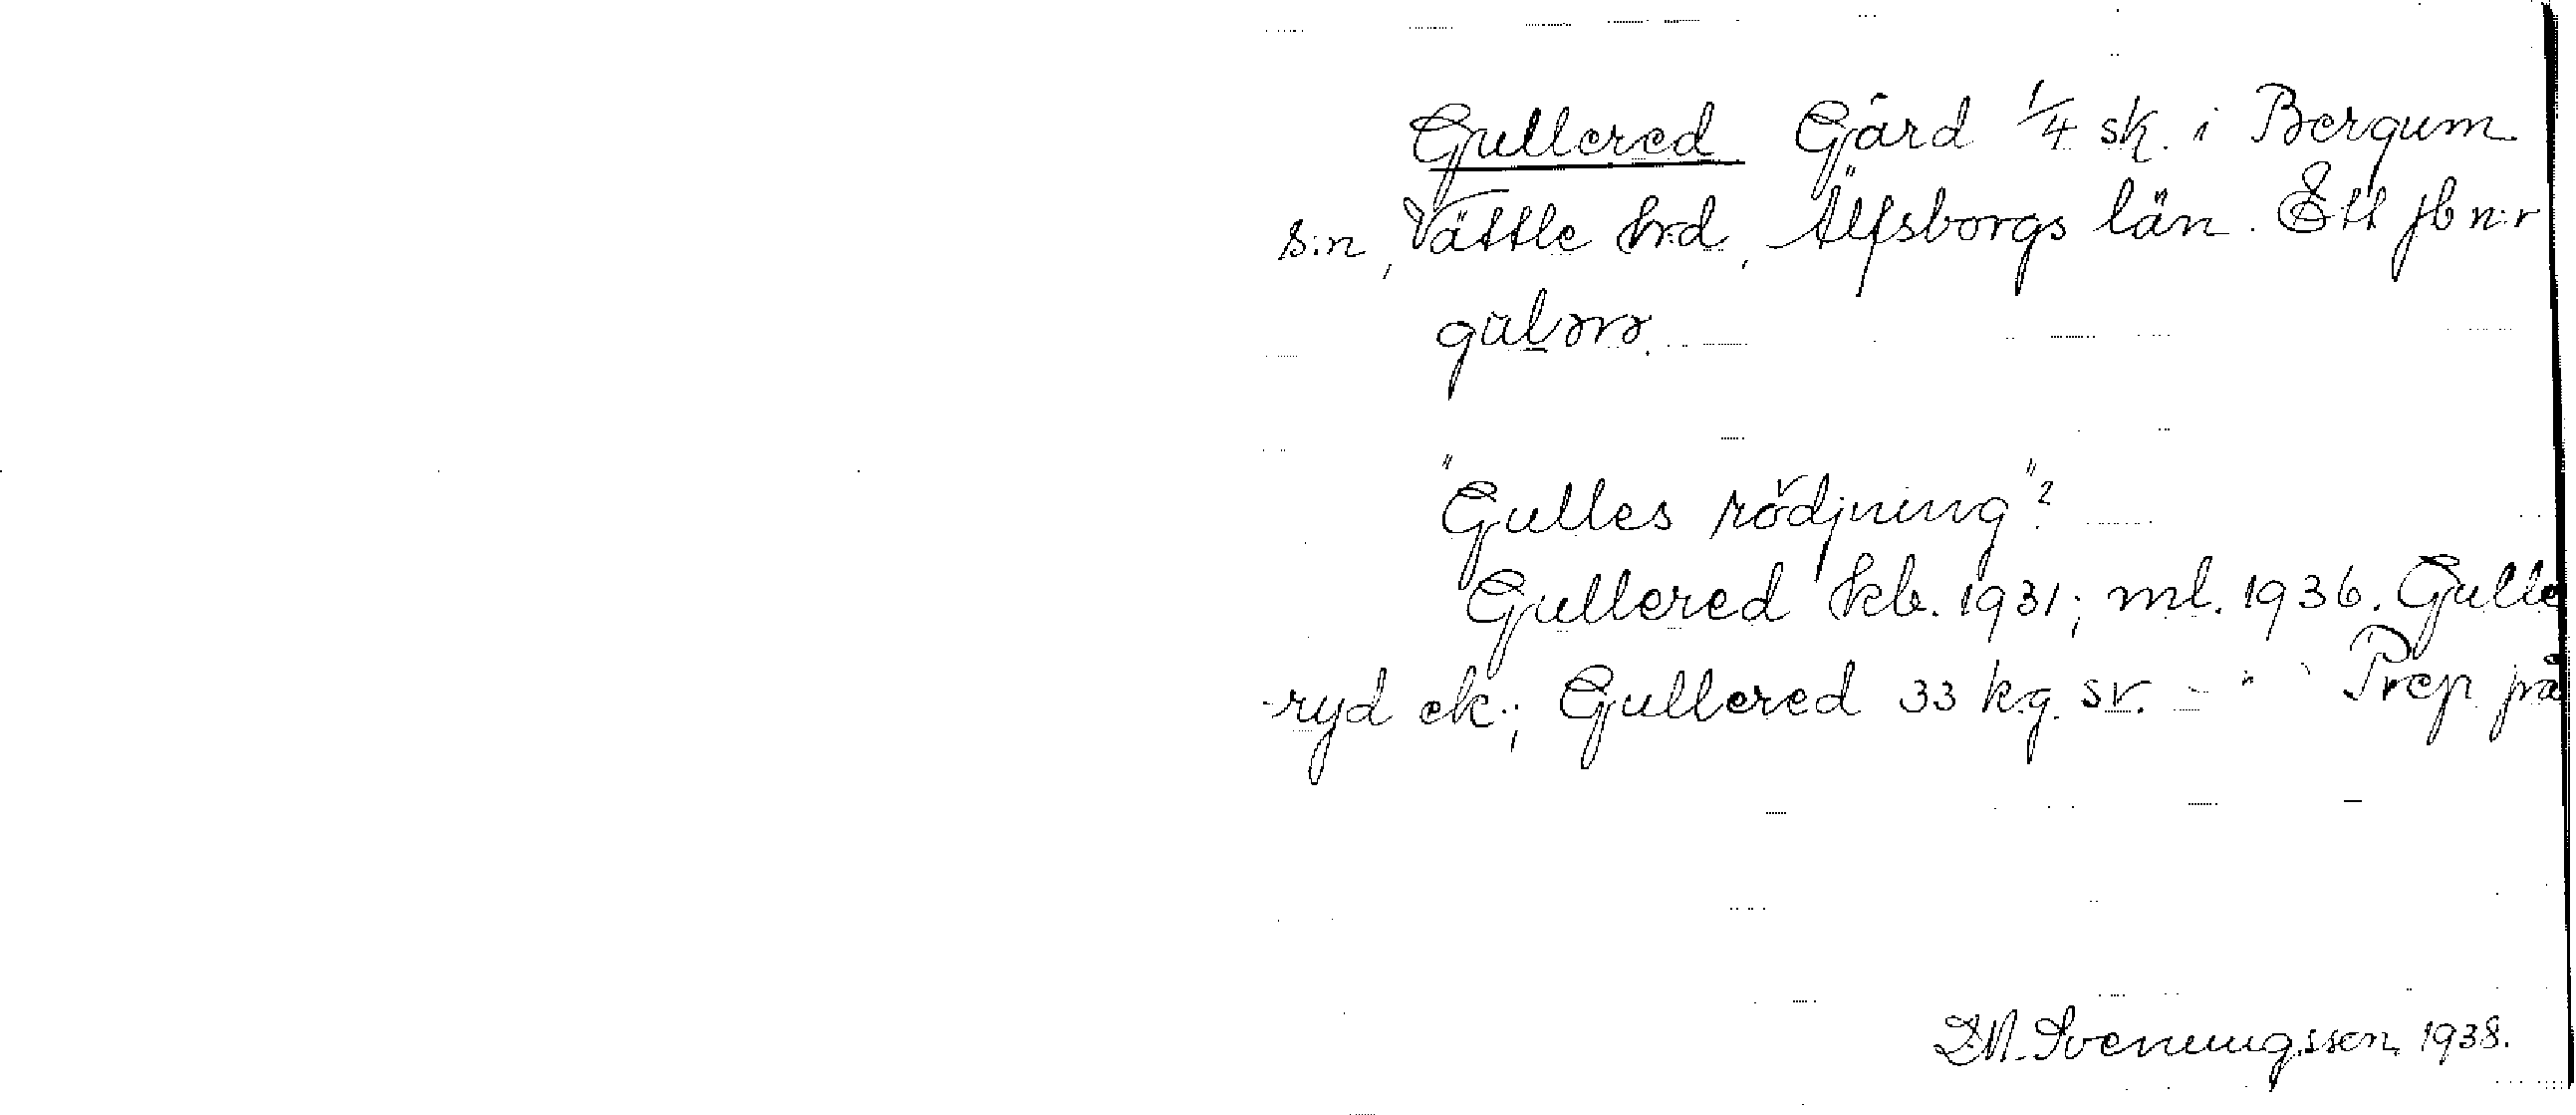 Gullered Gård 1/4 sk. i Bergum
s:n, Vättle hrd, Älfsborgs län. Ett jb n:r
"Gulles rödjning"?
Gullered kb. 1931; ml. 1936. Gulle
-ryd ek.; Gullered 33 kg. sv. - " Prep. på
Sveningsson, 1938.